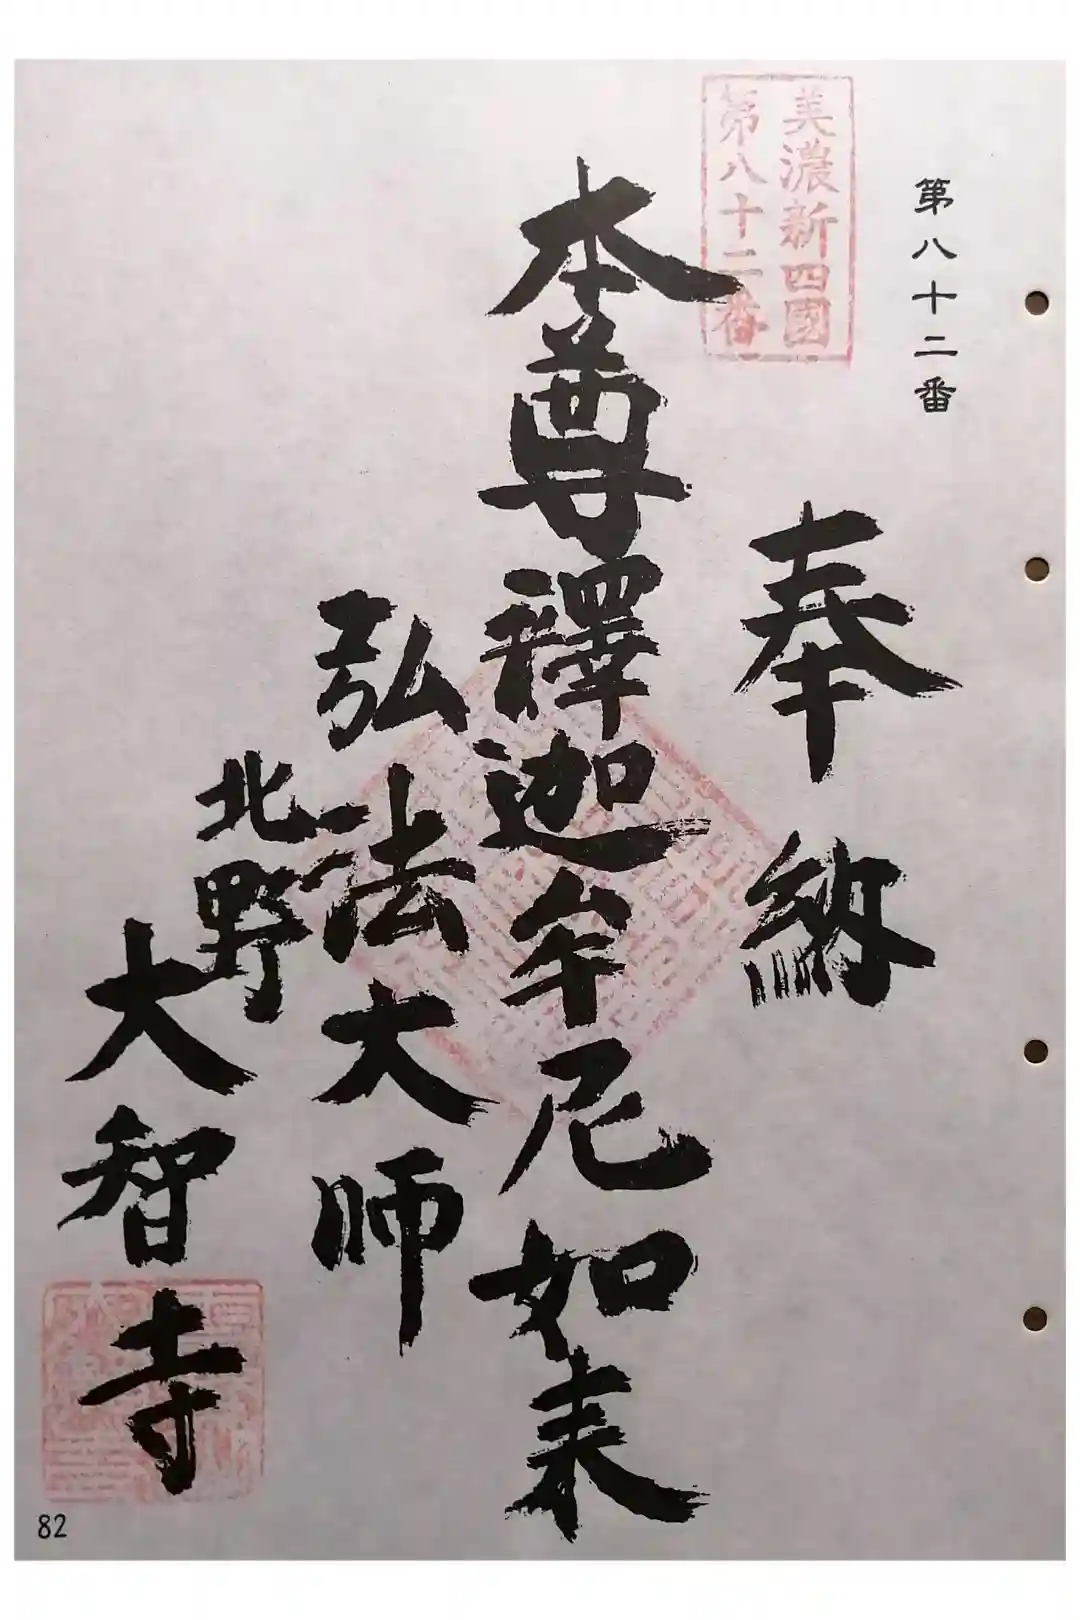 第八十二番
美濃新四國
第八十二番
奉納
本尊釋迦牟尼如来
弘法大師
北野
大智寺
82